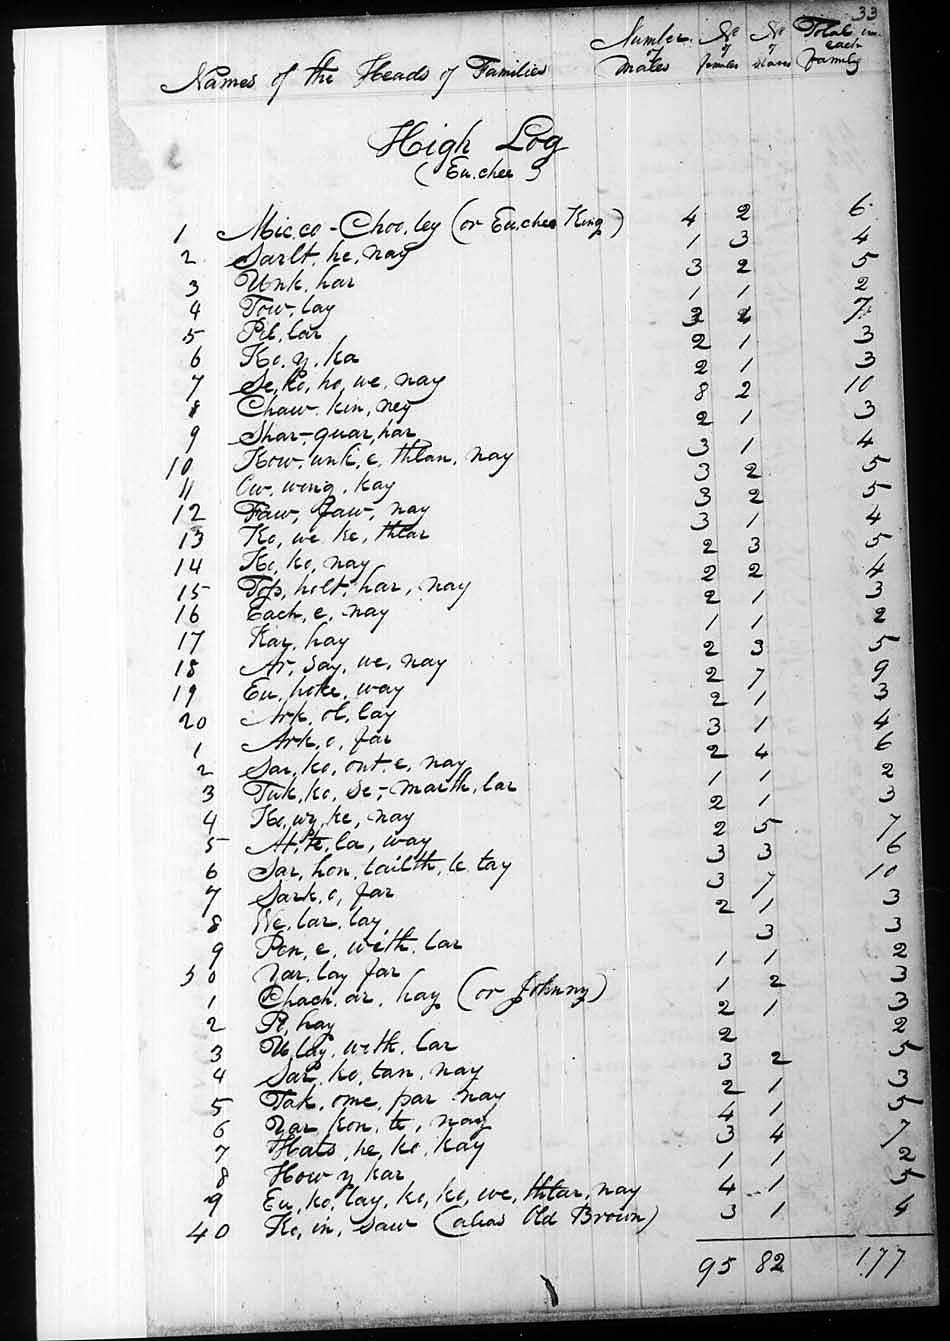 33
Names of the Heads of Families Number of Males No of females No of slaves Total in each family
High Log
(Eu.chee)
1 Micco-Choo,ley (or Euchee King) 4 2 6
2 Sarlt, he, nay 1 3 4
3 Unk, har 3 2 5
4 Tow, lay 1 1 2
5 Pil, lar 7
6 Ko, y, ka 2 1 3
7 Se, ko, ho, we, nay 2 1 3
8 Chaw, kin, ney 8 2 10
9 Shar-quar, har 2 1 3
10 Kow, unk, e, thlan, nay 3 1 4
11 Ow, wing, kay 3 2 5
12 Faw, faw, nay 3 2 5
13 Ko, we, ke, thlar 3 1 4
14 Ko, ko, nay 2 3 5
15 Tops, holt, har, nay 2 2 4
16 Each, e, nay 2 1 3
17 Kar, hay 1 1 2
18 Ar, say, we, nay 2 3 5
19 Eu, hoke, way 2 7 9
20 Ark, ol, lay 2 1 3
1 Ark, o, far 3 1 4
2 Sar, ko, ont, e, nay 2 4 6
3 Tuk, ko, se,- marth, lar 1 1 2
4 Ko, wy, ke, nay 2 1 3
5 At, te, la, way 2 5 7
6 Sar, hon, tailth, le, tay 3 3 6
7 Sark, o, far 3 7 10
8 We, lar, lay 2 1 3
9 Pen, e, with, lar 3 3
30 Yar, lay far 1 1 2
1 Chach, ar, hay (or Johnny) 1 2 3
2 Po, hay 2 1 3
3 U, lay, with, lar 2 2
4 Sar, ko, tan, nay 3 2 5
5 Tak, ome, par nay 2 1 3
6 Yar, kon, te, nay 4 1 5
7 Hats, he, ko, kay 3 4 7
8 How y kar 1 1 2
9 Eu, ko, lay, ko, ko, we, thlar, nay 4 1 5
40 Ko, in, saw (alias Old Brown) 3 1 4
95 82 177